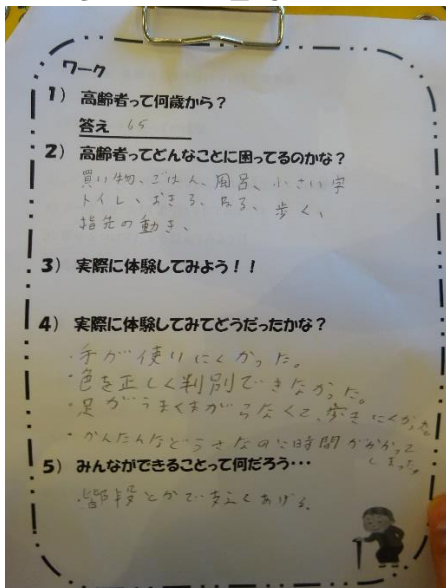 ワーク
1) 高齢者って何歳から？
答え 65
2) 高齢者ってどんなことに困ってるのかな？
買い物、ごはん、風呂、小さい字
トイレ、おきる、ねる、歩く、
指先の動き、
3) 実際に体験してみよう！！
4) 実際に体験してみてどうだったかな？
・手が使いにくかった。
・色を正しく判別できなかった。
・足がうまくまがらなくて、歩きにくかった。
・かんたんなどうさなのに時間がかかって
しまった。
5) みんなができることって何だろう…
・階段とかで支えてあげる。